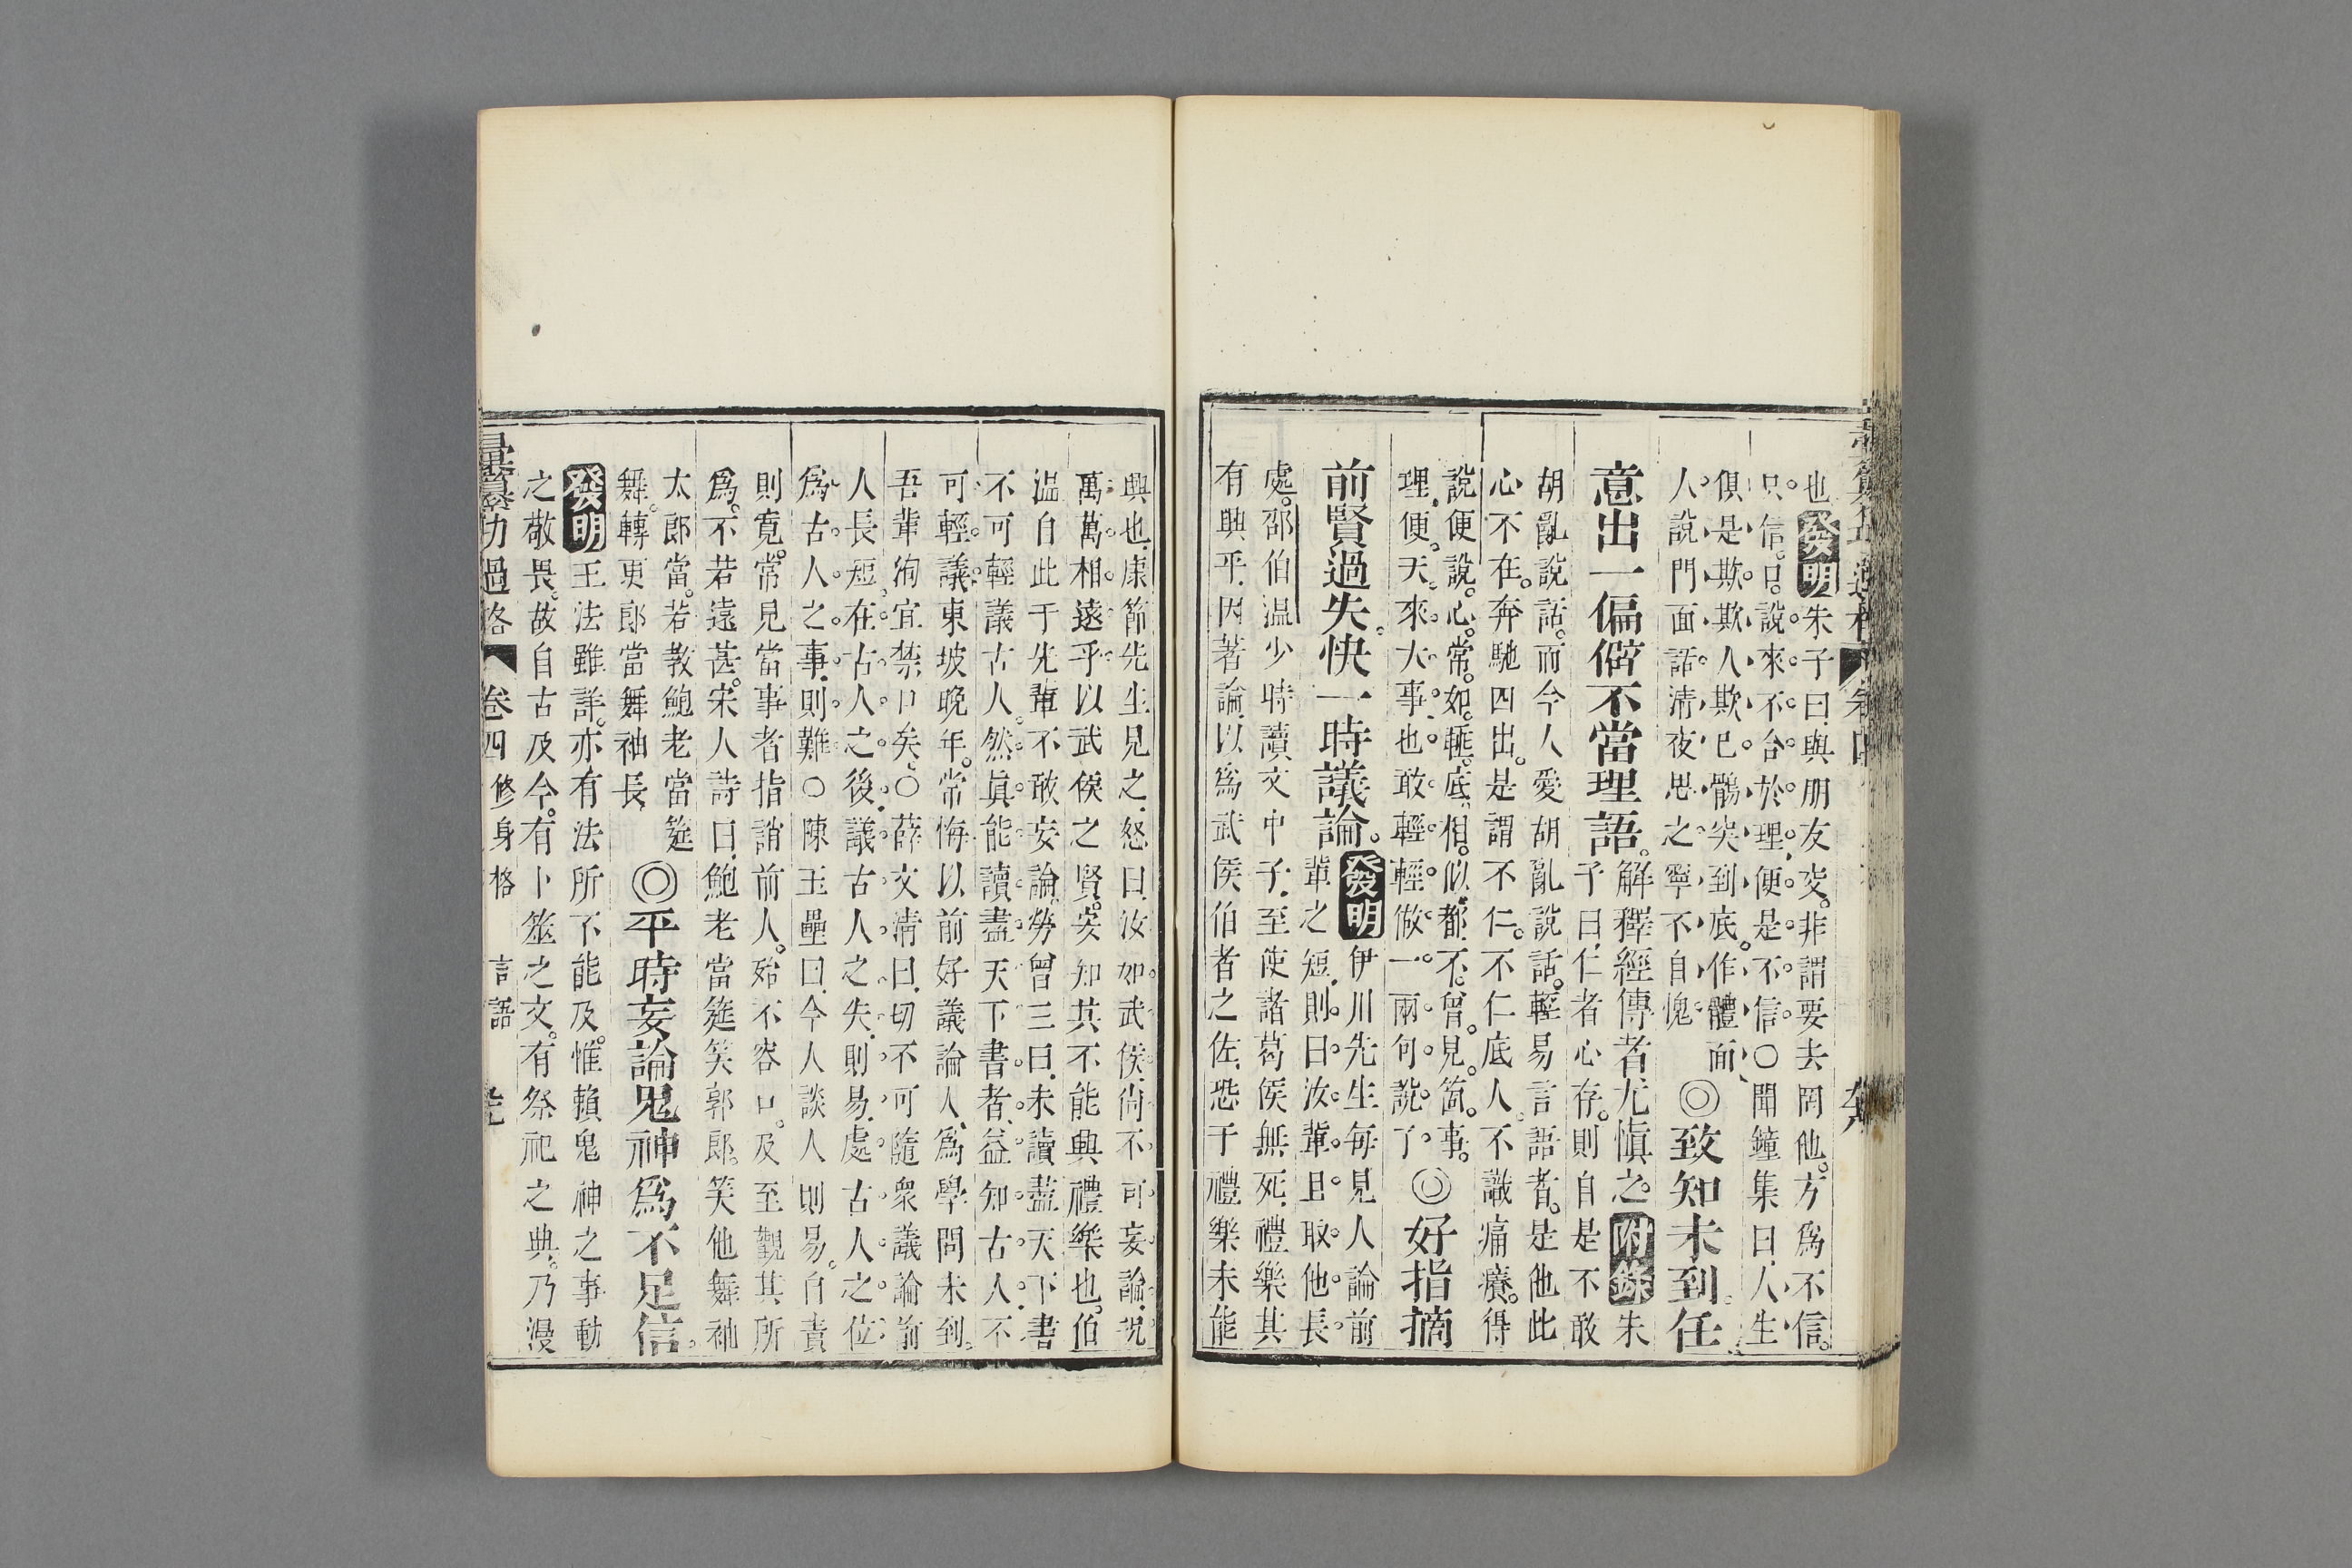 也發明朱子曰與朋友交非謂要去罔他方爲不信
只信口說來不合於理便是不信○聞鐘集曰人生
俱是欺欺人欺已鶻突到底作體面
人說門面話淸夜思之寧不自愧
◎致知未到任
意出一偏僻不當理語
解釋經傳者尤愼之附錄朱
子曰仁者心存則自是不敢
胡亂說話而今人愛胡亂說話輕易言語者是他此
心不在奔馳四出是謂不仁不仁底人不識痛癢得
說便說心常如睡底相似都不曾見箇事
理便天來大事也敢輕輕做一兩句說了
◎好指摘
前賢過失快一時議論
發明伊川先生每見人論前
輩之短則曰汝輩且取他長
處邵伯温少時讀文中子至使諸葛侯無死禮樂其
有興乎因著論以爲武侯伯者之佐恐于禮樂未能
興也康節先生見之怒曰汝如武侯尙不可妄論况
萬萬相遠乎以武侯之賢安知其不能興禮樂也伯
温自此于先輩不敢妄論勞曾三曰未讀盡天下書
不可輕議古人然眞能讀盡天下書者益知古人不
可輕議東坡晚年常悔以前好議論人爲學問未到
吾輩徇宜禁口矣○薛文淸曰切不可隨衆議論前
人長短在古人之後議古人之失則易處古人之位
爲古人之事則難○陳玉壘曰今人談人則易自責
則寬常見當事者指誚前人殆不容口及至觀其所
爲不若遠甚宋人詩曰鮑老當筵笑郭郎笑他舞袖
太郎當若教鮑老當筵
舞轉更郎當舞袖長
◎平時妄論鬼神爲不足信
發明王法雖詳亦有法所不能及惟賴鬼神之事動
之敬畏故自古及今有卜筮之文有祭祀之典乃漫
彙纂功過格 卷四 修身格 言語